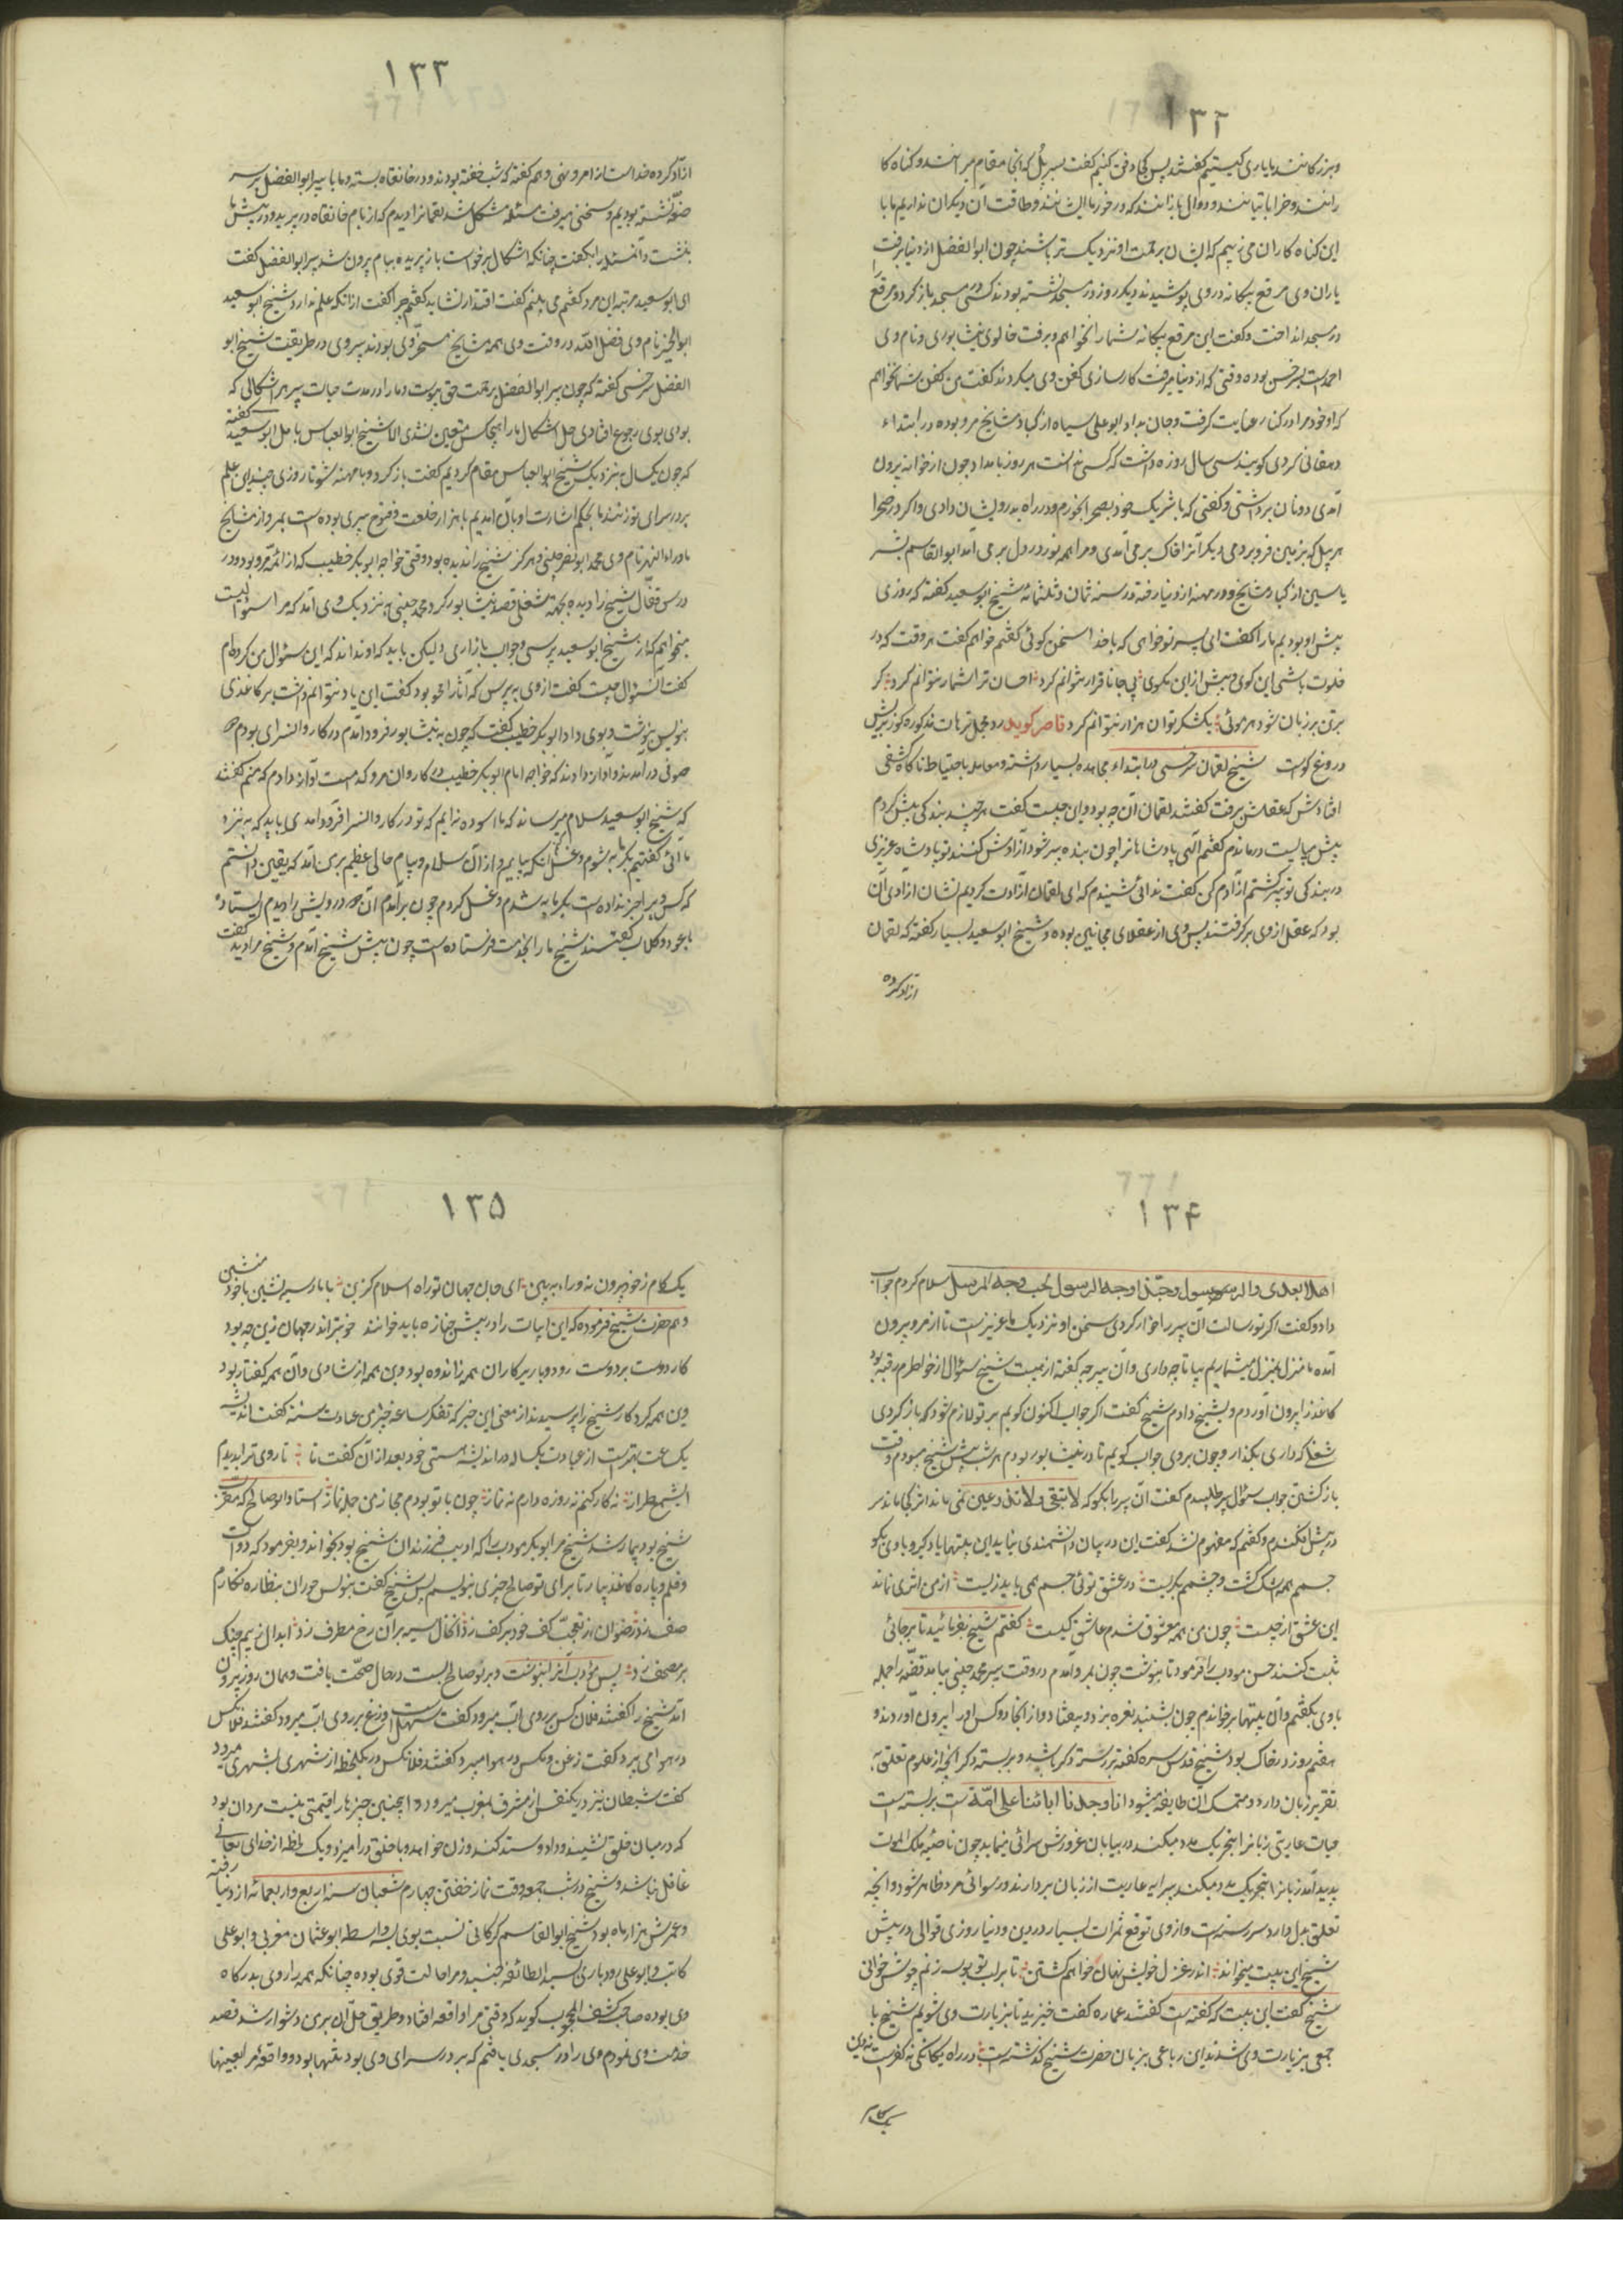 ۱۳۲
و بزرگانند با یاری کیستیم گفتند پس کجا دفن کنیم گفت بسر پل که آنجا مقامرانند و گناه کا
رانند و خراباتیانند و دوال بازانند که در خور ما ایشانند و طاقت آن دیگران نداریم ما با
این گناه کاران می‌زییم که ایشان برحمت او نزدیک تر باشند چون ابوالفضل از دنیا برفت
یاران وی مرقع بیگانه در وی پوشیدند دیگر روز در مسجد نشسته بودند کسی در مسجد باز کرد و مرقع
در مسجد انداخت و گفت این مرقع بیگانه شما را نخواهم و برفت خالوی نیشابوری و نام وی
احمدست بسرخس بوده وقتی که از دنیا میرفت کارسازی کفن وی میکردند گفت من کفن شما نخواهم
که او خود مرا در کنار عنایت گرفت و جان بداد ابو علی سیاه از کبار مشایخ مرو بوده در ابتداء
دهقانی کردی گویند سی سال روزه داشت که کسی ندانست هر روز بامداد چون از خانه بیرون
آمدی دو نان برداشتی و گفتی که با شریک خود بصحرا بخورم و در راه بدرویشان دادی و اگر در صحرا
هر بیل که بزمین فرو بردمی دیگر آنرا خاک بر می آمدی و مرا همه نور در دل بر می آمد ابوالقاسم بشر
یاسین از کبار مشایخ و در مهنه از دنیا رفته در سنه ثمان و ثلثمائه شیخ ابو سعید گفته که روزی
پیش او بودیم ما را گفت ای پسر تو خواهی که با خدا سخن گوئی گفتم خواهم گفت هر وقت که در
خلوت باشی این گوی و بیش ازین مگوی بی جانا قرار نتوانم کرد احسان ترا شمار نتوانم کرد گر
بر تن بر زبان شود هر موئی یکشکر تو از هزار نتوانم کرد قاصر گوید
دروغ گواست شیخ لقمان سرخسی در ابتداء مجاهده بسیار داشته و معامله باحتیاط ناگاه کشفی
افتادش که عقلش برفت گفتند لقمان آن چه بود و این چیست گفت هر چند بندگی بیش کردم
بیش میبایست درماندم گفتم آلهی پادشاهانرا چون بنده پیر شود آزادش کنند تو پادشاه عزیزی
در بندگی تو پیر گشتم آزادم کن گفت ندائی شنیدم که ای لقمان آزادت کردیم نشان آزادی آن
بود که عقل از وی برگرفتند پس وی از عقلای مجانین بوده و شیخ ابو سعید بسیار گفته که لقمان
آزاد کرده
۱۳۳
آزاد کرده خداست از امر و نهی و هم گفته که شب خفته بودند و در خانقاه بسته و ما با پیر ابوالفضل بر سر
صفه نشسته بودیم و سخنی میرفت مسئله مشکل شد لقمانرا دیدم که از بام خانقاه در پرید و در پیش ما
بنشست و آنمسئله را بگفت چنانکه اشکال برخواست باز پریده ببام بیرون شد پیر ابوالفضل گفت
ای ابو سعید مرتبه این مرد گفتم می بینم گفت اقتدا را نشاید گفتم چرا گفت از آنکه علم ندارد شیخ ابو سعید
ابوالخیر نام وی فضل الله در وقت وی همه مشایخ مسخر وی بودند پیر وی در طریقت شیخ ابو
الفضل سرخسی گفته که چون پیر ابوالفضل برحمت حق پیوست و ما را در مدت حیات پیر هر اشکالی که
بودی بوی رجوع افتادی حل اشکال ما را هیچکس متعین نشدی الا شیخ ابوالعباس بآمل ابو سعید گفته
که چون یکسال بنزدیک شیخ ابوالعباس مقام کردیم گفت باز گرد و بامهنه شو تا روزی چند این علم
بر در سرای تو زنند ما بحکم اشارت او بآن آمدیم با هزار خلعت و فتوح پیری بوده است بمرو از مشایخ
ماوراءالنهر نام وی محمد ابو نصر حبیبی و هرگز شیخ را ندیده بود وقتی خواجه ابو بکر خطیب که از ائمه مرو بود و در
درس قفال شیخ را دیده بجهة شغلی قصد نیشابور کرد محمد حبیبی نزدیک وی آمد که مرا سئوالیست
میخواهم که از شیخ ابو سعید پرسی و جواب باز آری و لیکن باید که او نداند که این سئوال من کرده‌ام
گفت آن سئوال چیست گفت از وی بپرس که آثار را محو بود گفت این یاد نتوانم داشت بر کاغذی
بنویس بنوشت و بوی داد ابو بکر خطیب گفت که چون به نیشابور فرود آمدم در کاروانسرای بودم دو
صوفی در آمدند و آواز دادند که خواجه امام ابو بکر خطیب در کاروان مرو که است آواز دادم که منم گفتند
که شیخ ابو سعید سلام میرساند که ما آسوده نه‌ایم که تو در کاروانسرا فرود آمدی باید که به نزد
ما آئی گفتیم بگرمابه شوم و غسل آنگه بیایم و از آن سلام و پیام حالی عظیم بر من آمد که یقین دانستم
که کس ویرا خبر نداده است بگرمابه شدم و غسل کردم چون برآمدم آن دو درویش را دیدم ایستاده
با عود و گلاب گفتند شیخ ما را بخدمت فرستاده است چون پیش شیخ آمدم و شیخ مرا دید گفت
۱۳۴
اهلا بعدی و الرسول وحبذا وجه الرسول لحب وجه المرسل سلام کردم جواب
داد و گفت اگر تو رسالت آن پیر را خوار کردی سخن او نزدیک ما عزیز است تا از مرو بیرون
آمده ما منزل بمنزل میشماریم بیا تا چه داری و آن پیر چه گفته از هیبت شیخ سئوال از خاطرم رفته بود
کاغذ را بیرون آوردم و بشیخ دادم شیخ گفت اگر جواب اکنون گویم بر تو لازم شود که باز گردی
شغلی که داری بگذار و چون بروی جواب گویم تا در نیشابور بودم هر شب پیش شیخ میبودم وقت
باز گشتن جواب سئوال پیر طلبیدم گفت آن پیر را بگو که لا تبقی و لا تذر و عین نمی ماند اثر کی ماند سر
در پیش افکندم و گفتم که مفهوم نشد گفت این در بیان دانشمندی نیاید این بیتها یاد گیر و با وی بگو
جسمم همه اشک گشت و چشمم بگریست در عشق تو بی جسم همی باید زیست از من اثری نماند
این عشق از چیست چون من همه معشوق شدم عاشق کیست گفتم شیخ بفرمائید تا بر جائی
ثبت کنند حسن مودب را فرمود تا بنوشت چون بمرو آمدم در وقت پیر محمد حبیبی بیامد قصه را جمله
با وی بگفتم و آن بیتها بر خواندم چون بشنید نعره بزد و بیفتاد و از آنجا دو کس او را بیرون آوردند و
هفتم روز در خاک بود شیخ قدس سره گفته بر رسته دگر باشد و بر بسته دگر آنچه از علوم تعلق به
تقریر زبان دارد و متمسک آن طایفه میشود انا وجدنا ابائنا علی امة است بربسته است
حیات عاریتی زبانرا بتحریک مدد میکند در بیابان غرورش سرائی مینماید چون ناصیه ملک الموت
پدید آمد زبانرا بتحریک مدد میکند پیرایه عاریت از زبان بردارند و رسوائی مرد ظاهر شود و آنچه
تعلق بدل دارد سر رسته است و از وی توقع ثمرات بسیار در دین و دنیا روزی قوالی در پیش
شیخ این بیت میخواند اندر غزل خویش نهان خواهم گشتن تا بر لب تو بوسه زنم چونش خوانی
شیخ گفت این بیت که گفته است گفتند عماره گفت خیزید تا بزیارت وی شویم شیخ با
جمعی بزیارت وی شدند این رباعی بزبان حضرت شیخ گذشته است در راه یگانگی نه کفرست نه دین
یک گام
۱۳۵
یک گام ز خود بیرون نه و راه ببین ای جان جهان تو راه اسلام گزین با مار سیه نشین و با خود منشین
و هم حضرت شیخ فرموده که این ابیات را در پیش جنازه باید خوانند خوبتر اندر جهان زین چه بود
کار دوست بر دوست رود و یار بر یار آن همه اندوه بود و ین همه از شادی و آن همه گفتار بود
وین همه کردار شیخ را پرسیدند از معنی این خبر که تفکر ساعة خیر من عبادت سنة گفت اندیشه
یک ساعت بهتر است از عبادت یکساله در اندیشه هستی خود بعد از آن گفت تا تا روی ترا بدیدم
ای شمع طراز نه کار کنم نه روزه دارم نه نماز چون با تو بودم مجاز من جمله نماز استاد ابو صالح که مقری
شیخ بود بیمار شد شیخ مر ابو بکر مودب را که ادیب فرزندان شیخ بود بخواند و بفرمود که دوات
و قلم و پاره کاغذ بیار تا برای بو صالح چیزی بنویسم پس شیخ گفت بنویس حوران بنظاره نگارم
صف زد رضوان از تعجب کف خود بر کف زد آن خال سیه بر آن رخ مطرف زد ابدال ز بیم چنگ
بر مصحف زد پس مودب آنرا بنوشت و بر بو صالح بست در حال صحت یافت و همان روز بیرون
آمد شیخ را گفتند فلان کس بر روی آب میرود گفت سهل است وزغ بر روی آب میرود گفتند فلانکس
در هوا می پرد گفت زغن و مگس در هوا میپرد گفتند فلانکس در یکلحظه از شهری بشهری میرود
گفت شیطان نیز در یکنفس از مشرق بمغرب میرود اینچنین چیزها را قیمتی نیست مردان بود
که در میان خلق نشیند و داد و ستد کند و زن خواهد و با خلق در آمیزد و یک لحظه از خدای تعالی
غافل نباشد و شیخ در شب جمعه وقت نماز خفتن چهارم شعبان سنه اربع و اربعمائه از دنیا رفته
و عمرش هزار ماه بود شیخ ابوالقاسم گرگانی نسبت بوی بسه واسطه ابو عثمان مغربی و ابو علی
کاتب و ابو علی رودباری بسید الطائفه جنید و مر او حالت قوی بوده چنانکه همه را روی بدرگاه
وی بوده صاحب کشف المحجوب گوید که وقتی مرا واقعه افتاد و طریق حل آن بر من دشوار شد قصد
خدمت وی نمودم وی را در مسجدی یافتم که بر در سرای وی بود تنها بود و واقعه مرا بعینها